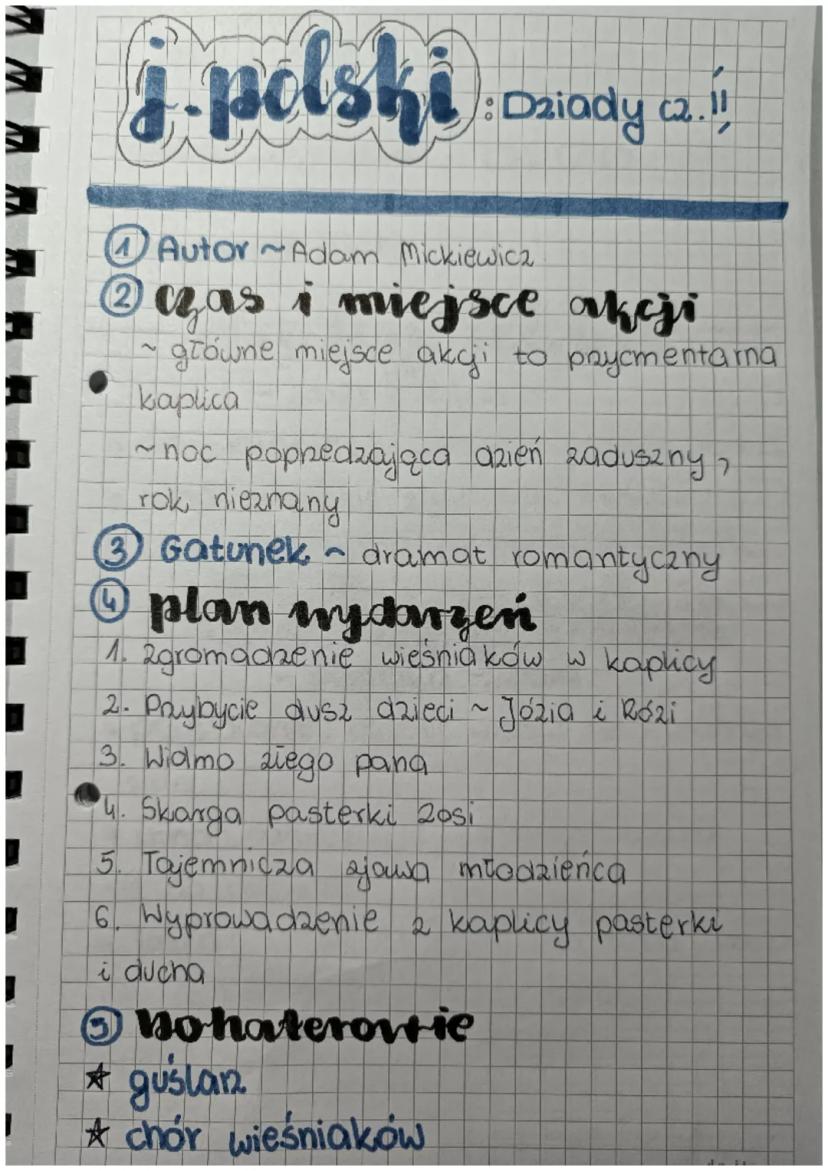 j. polski : Dziady cz. II
1 Autor ~ Adam Mickiewicz
2 czas i miejsce akcji
~ główne miejsce akcji to przycmentarna
kaplica
~ noc poprzedzająca dzień zaduszny,
rok nieznany
3 Gatunek ~ dramat romantyczny
4 plan wydarzeń
1. zgromadzenie wieśniaków w kaplicy
2. Przybycie dusz dzieci ~ Józia i Rózi
3. Widmo złego pana
4. Skarga pasterki Zosi
5. Tajemnicza zjawa młodzieńca
6. Wyprowadzenie z kaplicy pasterki
i ducha
5 Bohaterowie
☆ guślarz
☆ chór wieśniaków